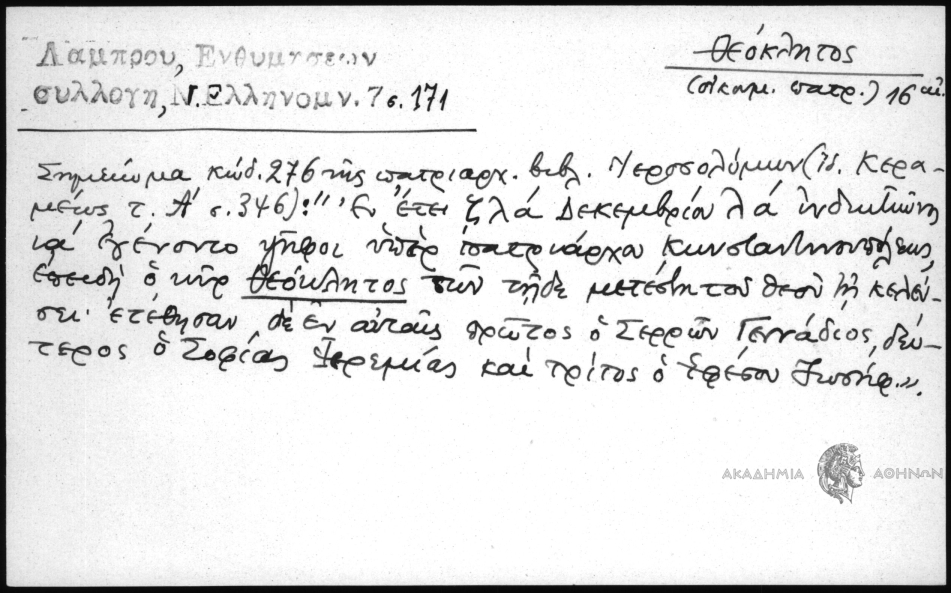 Λάμπρου, Ενθυμήσεων
συλλογη, Ν. Ελληνομν. 7 σ. 171
Θεόκλητος
(οἰκουμ. πατρ.) 16 αἰ.
Σημείωμα κώδ. 276 τῆς πατριαρχ. βιβλ. Ἱεροσολύμων (ἰδ. Κερα-
μέως τ. Α' σ. 346): "Ἐν ἔτει ζλα Δεκεμβρίου λα ἰνδικτιῶνη
ια ἐγένοντο ψῆφοι ὑπὲρ πατριάρχου Κωνσταντινουπόλεως,
ἐπειδὴ ὁ κῦρ Θεόκλητος τῶν τῇδε μετέστη τοῦ θεοῦ τῇ κελεύ-
σει· ἐτέθησαν δὲ ἐν αὐταῖς πρῶτος ὁ Σερρῶν Γεννάδιος, δεύ-
τερος ὁ Σοφίας Ἱερεμίας καὶ τρίτος ὁ Ἐφέσου Ἰωσήφ".
ΑΚΑΔΗΜΙΑ ΑΘΗΝΩΝ